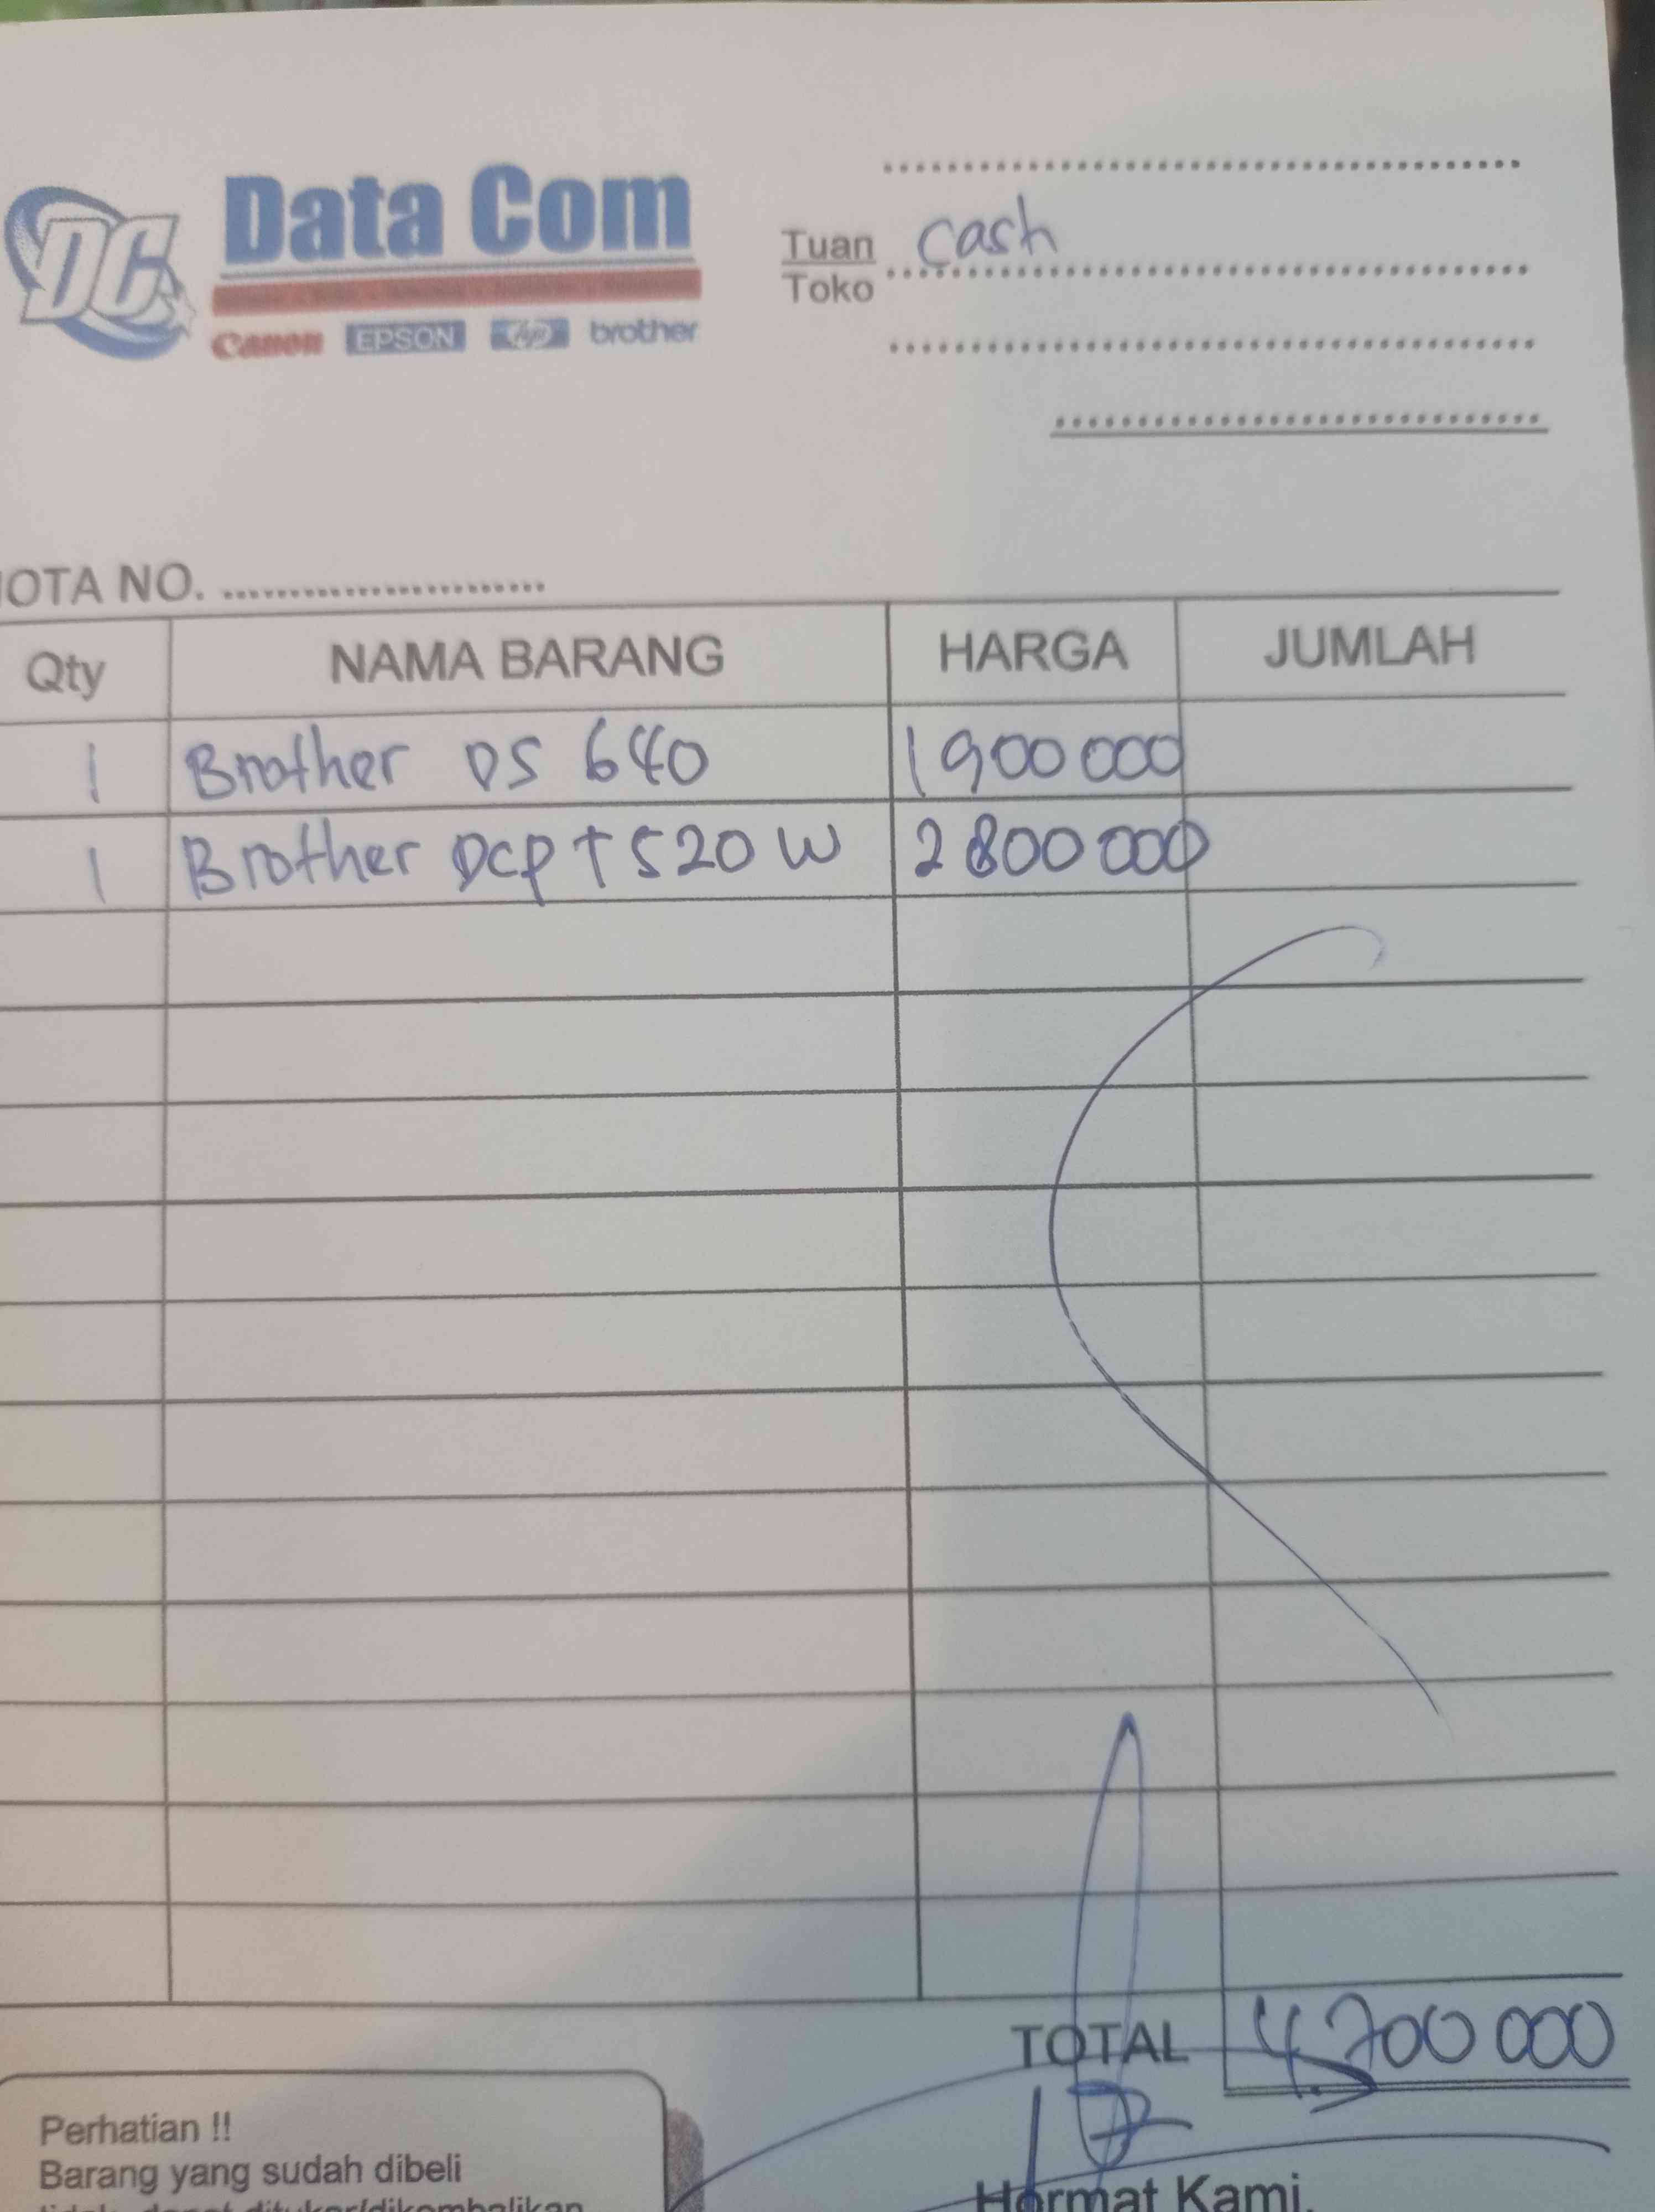 DC Data Com
Canon EPSON hp brother
Tuan cash
Toko
OTA NO.
Qty NAMA BARANG HARGA JUMLAH
1 Brother DS 640 1900 000
1 Brother Dcp T 520 W 2800 000
TOTAL 4.700 000
Perhatian !!
Barang yang sudah dibeli
tidak dapat ditukar/dikembalikan
Hormat Kami,